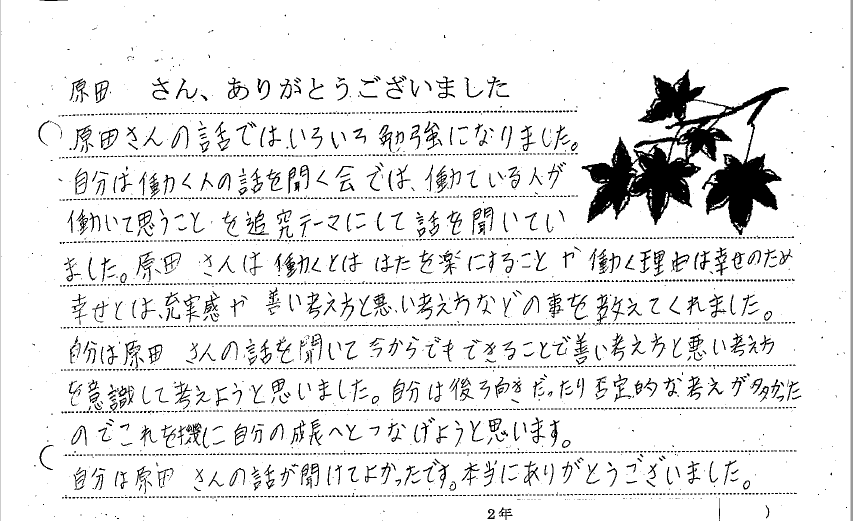 原田 さん、ありがとうございました
原田さんの話ではいろいろ勉強になりました。
自分は働く人の話を聞く会では、働ている人が
働いて思うことを追究テーマにして話を聞いてい
ました。原田 さんは働くとははたを楽にすることや働く理由は幸せのため
幸せとは、充実感や善い考え方と悪い考え方などの事を教えてくれました。
自分は原田 さんの話を聞いて今からでもできることで善い考え方と悪い考え方
を意識して考えようと思いました。自分は後ろ向きだったり否定的な考えが多かった
のでこれを機に自分の成長へとつなげようと思います。
自分は原田 さんの話が聞けてよかったです。本当にありがとうございました。
2年 )